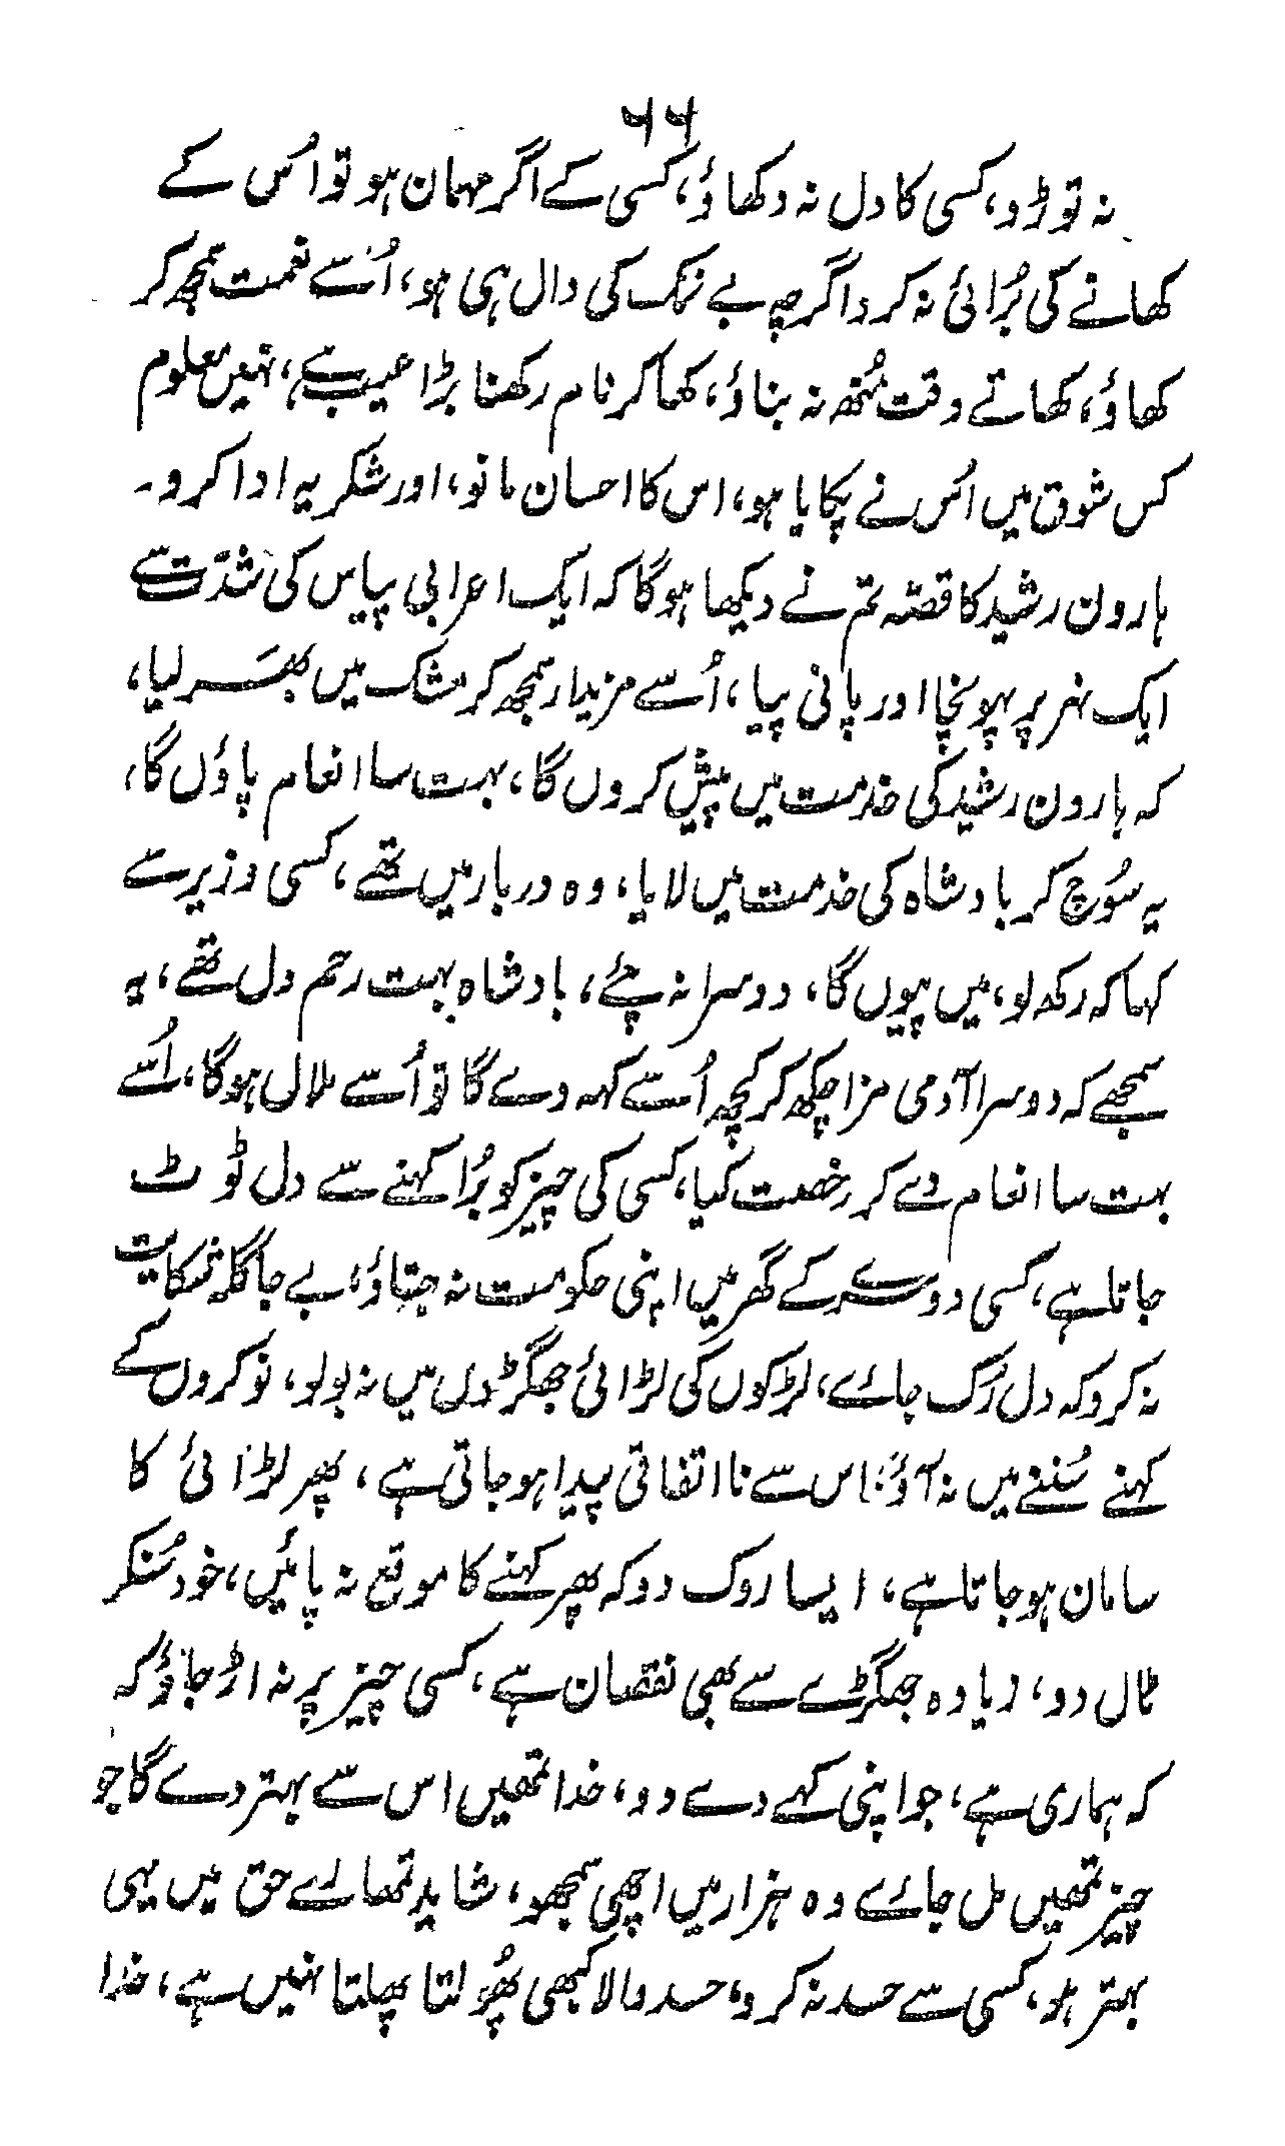 ۶۶
نہ توڑو، کسی کا دل نہ دکھاؤ، کسی کے اگر مہمان ہو تو اُس کے
کھانے کی بُرائی نہ کرو اگرچہ بے نمک کی دال ہی ہو، اُسے نعمت سمجھ کر
کھاؤ، کھاتے وقت مُنھ نہ بناؤ، کھا کر نام رکھنا بڑا عیب ہے، نہیں معلوم
کس شوق میں اُس نے پکایا ہو، اس کا احسان مانو، اور شکریہ ادا کرو۔
ہارون رشید کا قصّہ تم نے دیکھا ہوگا کہ ایک اعرابی پیاس کی شدّت سے
ایک نہر پر پہونچا اور پانی پیا، اُسے مزیدار سمجھ کر مشک میں بھَر لیا،
کہ ہارون رشید کی خدمت میں پیش کروں گا، بہت سا انعام پاؤں گا،
یہ سُوچ کر بادشاہ کی خدمت میں لایا، وہ دربار میں تھے، کسی وزیر سے
کہا کہ رکھ لو، میں پیوں گا، دوسرا نہ پئے، بادشاہ بہت رحم دل تھے، یہ
سمجھے کہ دوسرا آدمی مزا چکھ کر کچھ اُسے کہہ دے گا تو اُسے ملال ہوگا، اُسے
بہت سا انعام دے کر رخصت کیا، کسی کی چیز کو بُرا کہنے سے دل ٹوٹ
جاتا ہے، کسی دوسرے کے گھر میں اپنی حکومت نہ جتاؤ، بے جا گلہ شکایت
نہ کرو کہ دل رُک جائے، لڑکوں کی لڑائی جھگڑوں میں نہ بولو، نوکروں کے
کہنے سُننے میں نہ آؤ، اس سے نااتفاقی پیدا ہو جاتی ہے، پھر لڑائی کا
سامان ہو جاتا ہے، ایسا روک دو کہ پھر کہنے کا موقع نہ پائیں، خود سُنکر
ٹال دو، زیادہ جھگڑے سے بھی نقصان ہے، کسی چیز پر نہ اڑ جاؤ کہ
کہ ہماری ہے، جو اپنی کہے دے دو، خدا تمھیں اس سے بہتر دے گا جو
چیز تمھیں مل جائے وہ ہزار میں اچھی سمجھو، شاید تمھارے حق میں یہی
بہتر ہو، کسی سے حسد نہ کرو، حسد والا کبھی پھُولتا پھلتا نہیں ہے، خدا